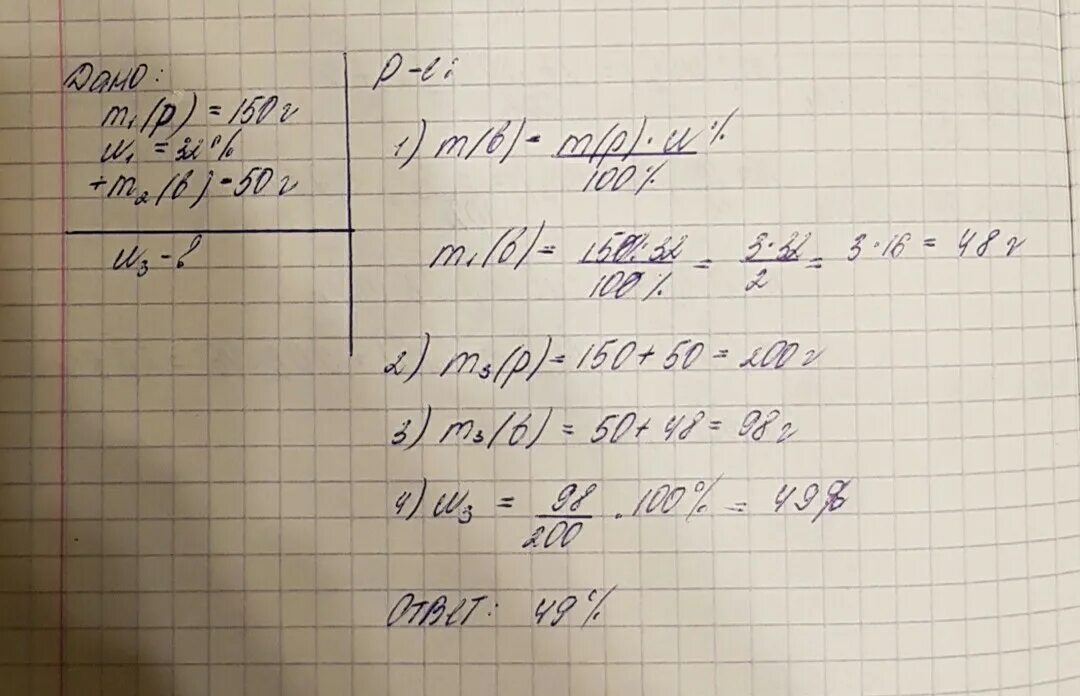 Дано:
m₁(р) = 150 г
w₁ = 32%
+m₂(в) = 50 г
w₃ - ?
Р-е:
1) m(в) = m(р)·w% / 100%
m₁(в) = 150%·32 / 100% = 3·32 / 2 = 3·16 = 48 г
2) m₃(р) = 150 + 50 = 200 г
3) m₃(в) = 50 + 48 = 98 г
4) w₃ = 98 / 200 · 100% = 49%
Ответ: 49%